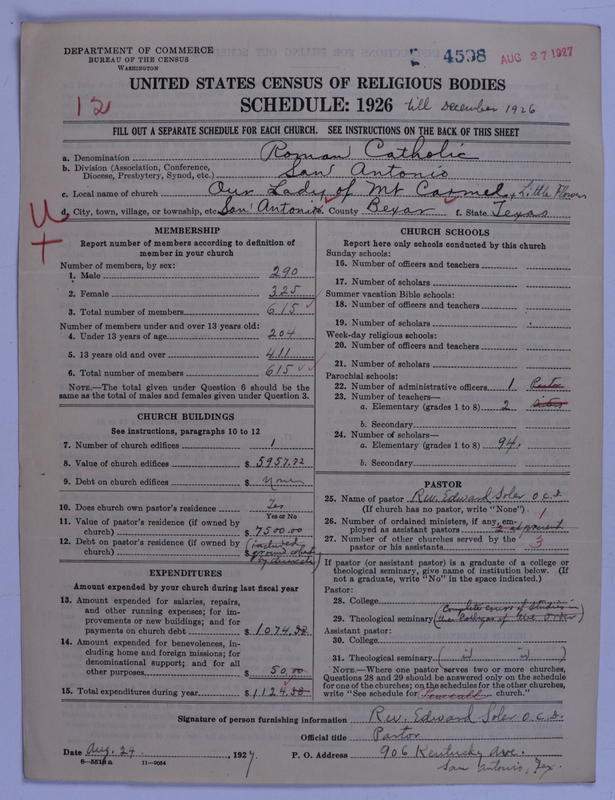 DEPARTMENT OF COMMERCE
BUREAU OF THE CENSUS
WASHINGTON
4598
AUG 27 1927
UNITED STATES CENSUS OF RELIGIOUS BODIES
SCHEDULE: 1926 till December 1926
12
FILL OUT A SEPARATE SCHEDULE FOR EACH CHURCH. SEE INSTRUCTIONS ON THE BACK OF THIS SHEET
a. Denomination Roman Catholic
b. Division (Association, Conference, Diocese, Presbytery, Synod, etc.) San Antonio
c. Local name of church Our Lady of Mt Carmel & Little Flower
d. City, town, village, or township, etc. San Antonio e. County Bexar f. State Texas
MEMBERSHIP
Report number of members according to definition of
member in your church
Number of members, by sex:
1. Male 290
2. Female 325
3. Total number of members 615
Number of members under and over 13 years old:
4. Under 13 years of age 204
5. 13 years old and over 411
6. Total number of members 615
NOTE.—The total given under Question 6 should be the
same as the total of males and females given under Question 3.
CHURCH BUILDINGS
See instructions, paragraphs 10 to 12
7. Number of church edifices 1
8. Value of church edifices $ 5957.72
9. Debt on church edifices $ None
10. Does church own pastor's residence? Yes
Yes or No
11. Value of pastor's residence (if owned by
church) $ 7500.00
12. Debt on pastor's residence (if owned by
church) $ (included ground
EXPENDITURES
Amount expended by your church during last fiscal year
13. Amount expended for salaries, repairs,
and other running expenses; for im-
provements or new buildings; and for
payments on church debt $ 1074.38
14. Amount expended for benevolences, in-
cluding home and foreign missions; for
denominational support; and for all
other purposes $ 50.00
15. Total expenditures during year $ 1124.38
CHURCH SCHOOLS
Report here only schools conducted by this church
Sunday schools:
16. Number of officers and teachers
17. Number of scholars
Summer vacation Bible schools:
18. Number of officers and teachers
19. Number of scholars
Week-day religious schools:
20. Number of officers and teachers
21. Number of scholars
Parochial schools:
22. Number of administrative officers 1 Pastor
23. Number of teachers—
a. Elementary (grades 1 to 8) 2
b. Secondary
24. Number of scholars—
a. Elementary (grades 1 to 8) 94
b. Secondary
PASTOR
25. Name of pastor Rev. Edward Soler O.C.D.
(If church has no pastor, write "None")
26. Number of ordained ministers, if any, em-
ployed as assistant pastors 1 2 at present
27. Number of other churches served by the
pastor or his assistants 3
If pastor (or assistant pastor) is a graduate of a college or
theological seminary, give name of institution below. (If
not a graduate, write "No" in the space indicated.)
Pastor:
28. College
29. Theological seminary (Complete course of Studies in the Colleges of the Order)
Assistant pastor:
30. College
31. Theological seminary ( id id )
NOTE.—Where one pastor serves two or more churches,
Questions 28 and 29 should be answered only on the schedule
for one of the churches; on the schedules for the other churches,
write "See schedule for church."
Signature of person furnishing information Rev. Edward Soler O.C.D.
Official title Pastor
Date Aug. 24, 1927. P. O. Address 906 Kentucky Ave.
San Antonio, Tex.
11—9054